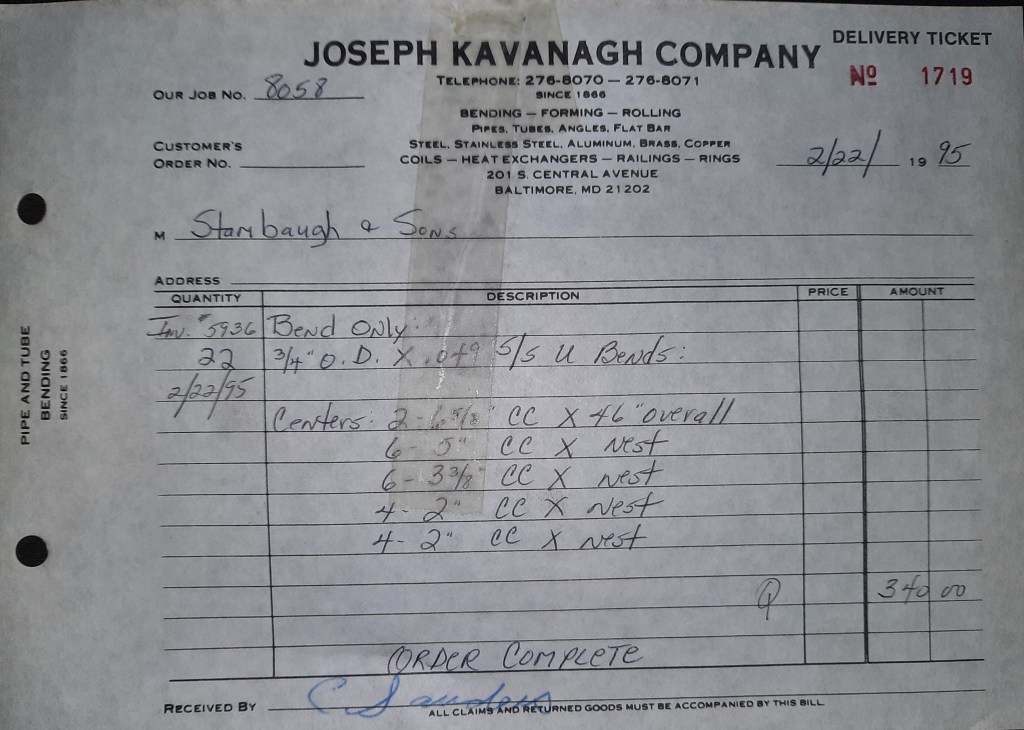 DELIVERY TICKET
JOSEPH KAVANAGH COMPANY
Nº 1719
TELEPHONE: 276-8070 — 276-8071
OUR JOB NO. 8058
SINCE 1866
BENDING — FORMING — ROLLING
PIPES, TUBES, ANGLES, FLAT BAR
CUSTOMER'S
ORDER NO.
STEEL, STAINLESS STEEL, ALUMINUM, BRASS, COPPER
COILS — HEAT EXCHANGERS — RAILINGS — RINGS
2/22/ 19 95
201 S. CENTRAL AVENUE
BALTIMORE, MD 21202
M Stambaugh & Sons
ADDRESS
QUANTITY DESCRIPTION PRICE AMOUNT
Inv. #5936 Bend Only:
22 3/4" O.D. X .049 S/S U Bends:
2/22/95
Centers: 2-6 5/8" CC X 46" overall
6- 5" CC X Nest
6- 3 3/8" CC X Nest
4- 2" CC X Nest
4- 2" CC X Nest
340 00
ORDER COMPLETE
RECEIVED BY C Saunders
ALL CLAIMS AND RETURNED GOODS MUST BE ACCOMPANIED BY THIS BILL
PIPE AND TUBE
BENDING
SINCE 1866